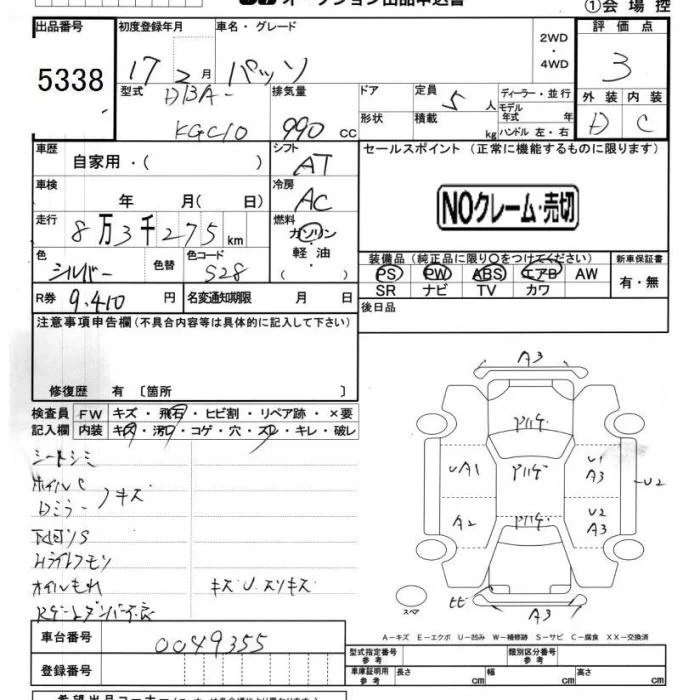 オークション出品申込書
①会場控
出品番号 初度登録年月 車名・グレード 2WD・4WD 評価点
5338 17年2月 パッソ 3
型式 DBA-KGC10 排気量 990cc ドア 定員 5人 ディーラー・並行
形状 積載 kg モデル年式 年 ハンドル 左・右
外装 内装
D C
車歴 自家用・( ) シフト AT セールスポイント (正常に機能するものに限ります)
車検 年 月( 日) 冷房 AC
NOクレーム・売切
走行 8万3千275km 燃料 ガソリン 軽油 ( )
色 シルバー 色替 色コード S28
装備品(純正品に限り〇をつけてください) 新車保証書
PS PW ABS エアB AW 有・無
SR ナビ TV カワ
R券 9,410円 名変通知期限 月 日
後日品
注意事項申告欄(不具合内容等は具体的に記入して下さい)
修復歴 有 〔箇所 〕
検査員記入欄 FW キズ・飛石・ヒビ割・リペア跡・×要
内装 キズ・汚れ・コゲ・穴・スレ・キレ・破レ
シートシミ
ホイルC
Dミラー キズ
下回りS
Hライトクモリ
オイルもれ キズU.スリキズ
A3
UA1
U1
A3
U2
A2
U2
A3
A3
スペア
A-キズ E-エクボ U-凹み W-補修跡 S-サビ C-腐食 XX-交換済
車台番号 0049355
登録番号
型式指定番号 参考 類別区分番号 参考
車庫証明用 参考 長さ cm 幅 cm 高さ cm
希望出品コーナー